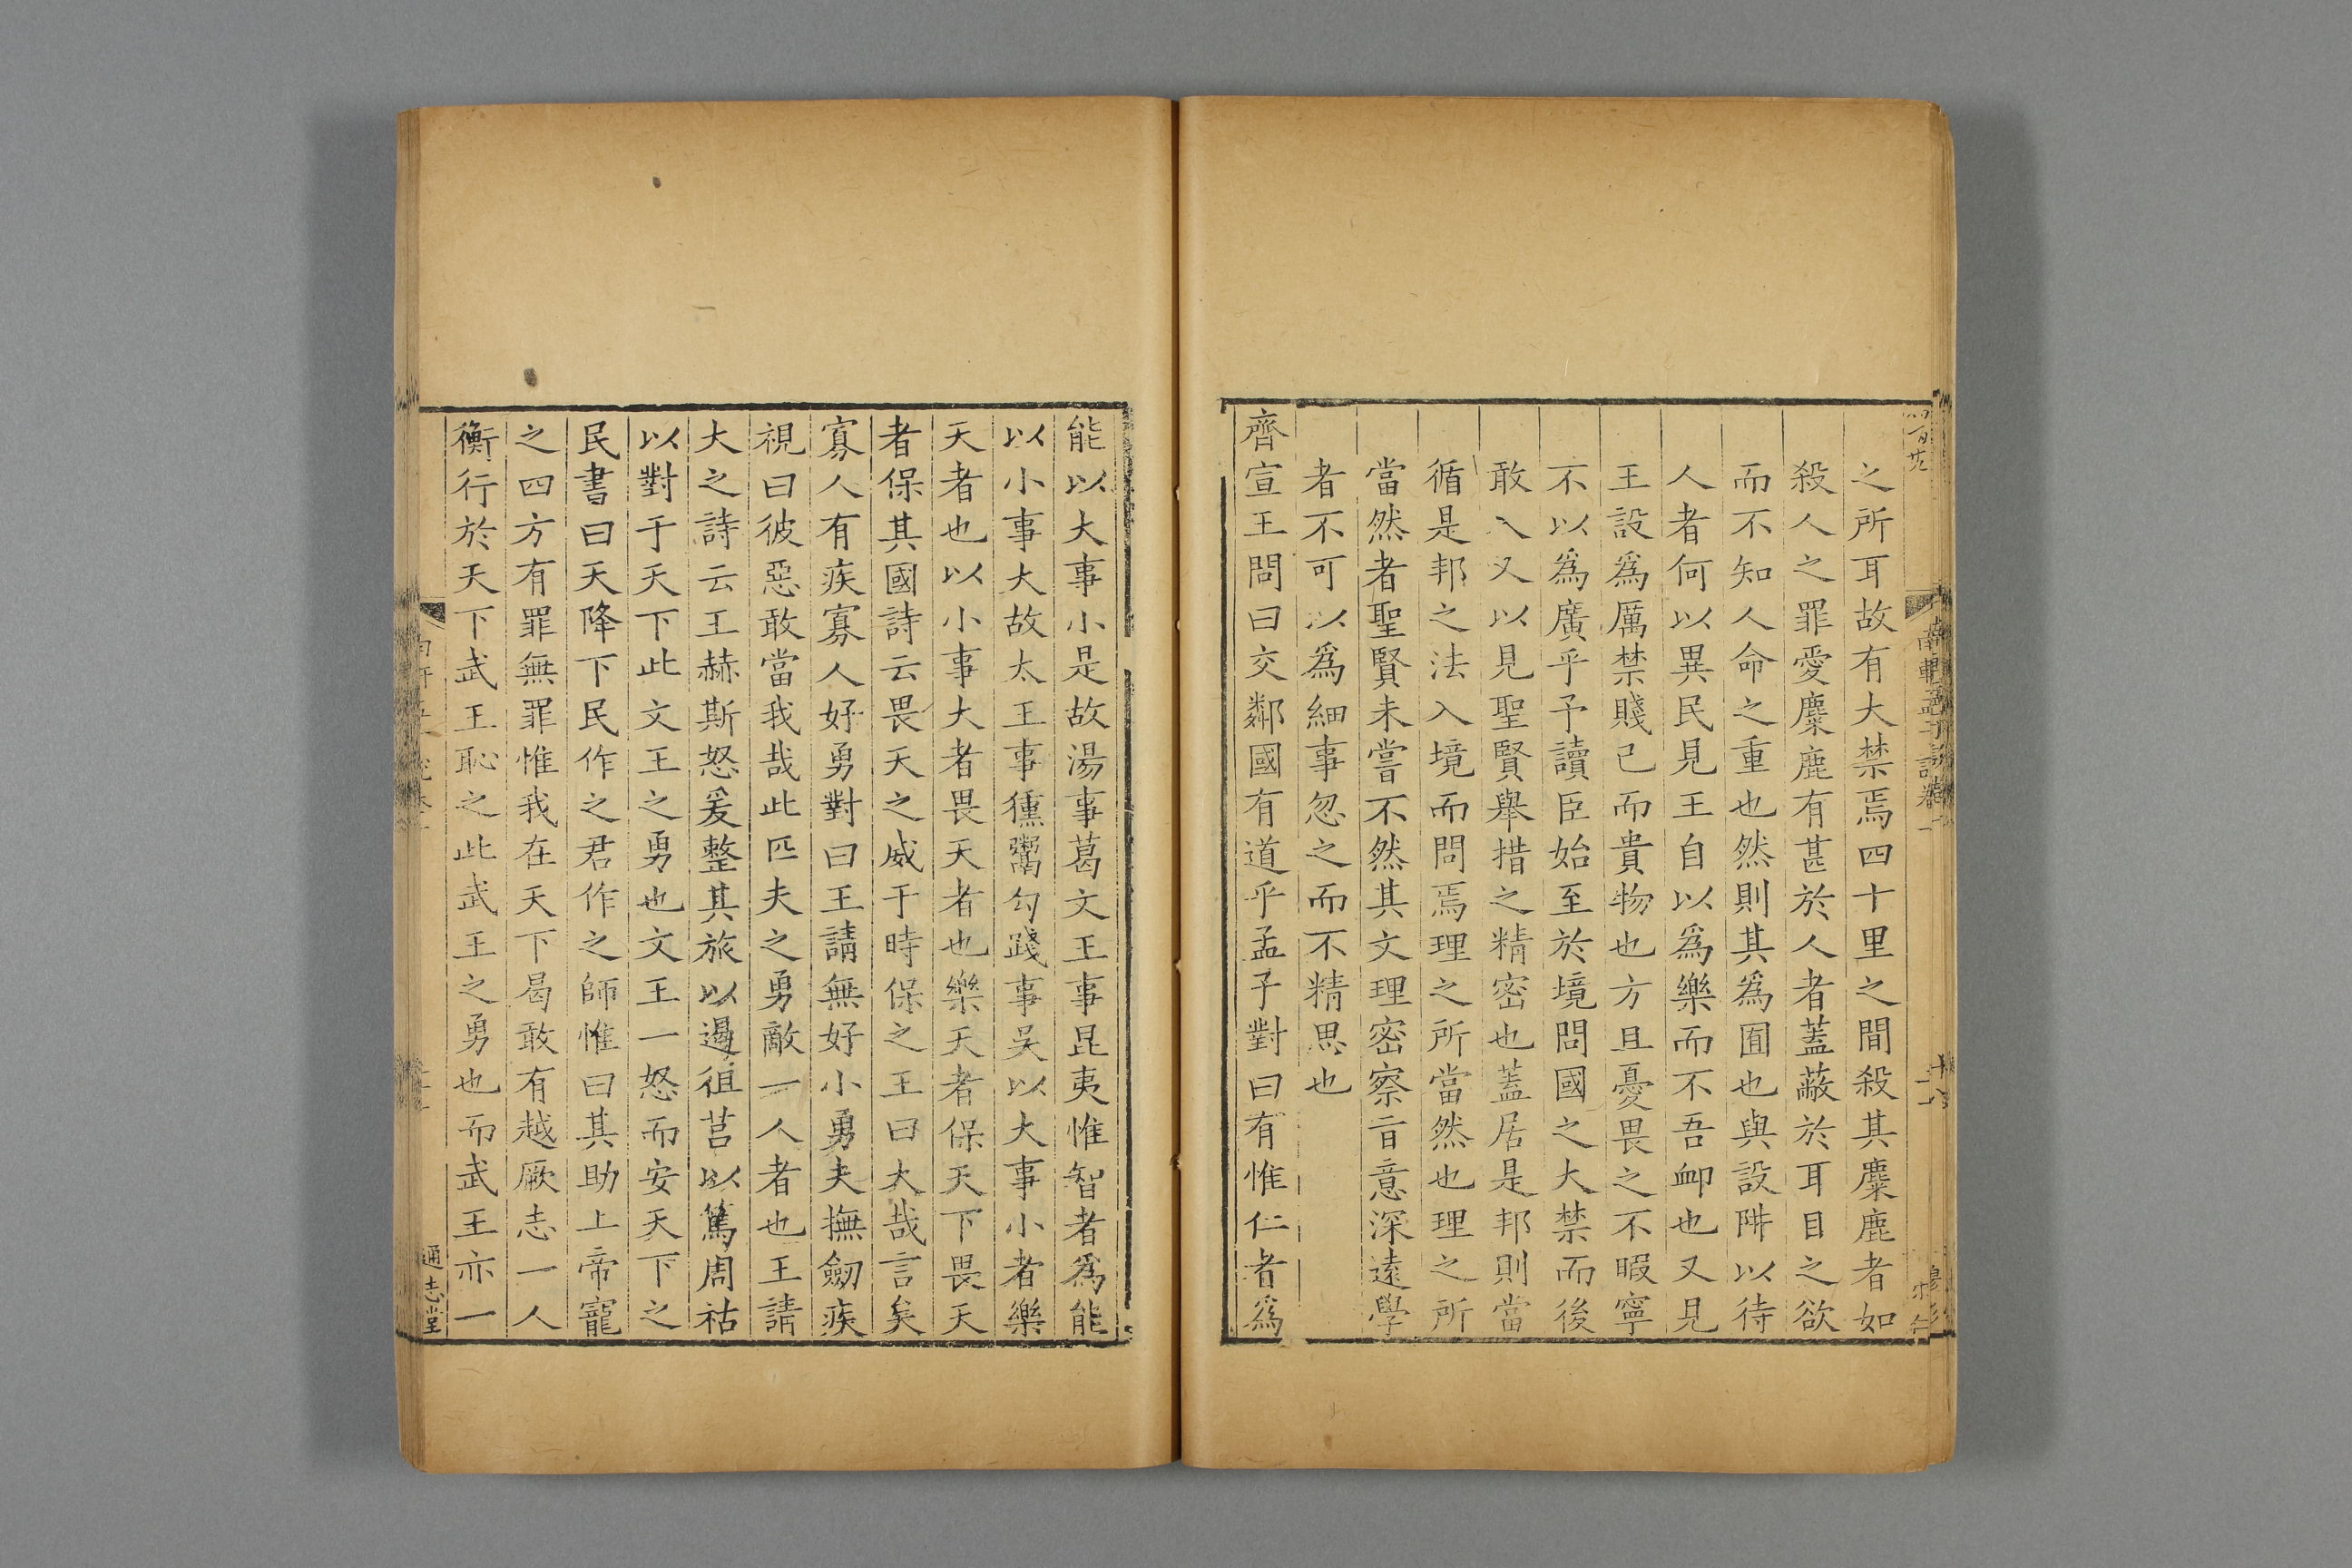 之所耳故有大禁焉四十里之間殺其麋鹿者如
殺人之罪愛麋鹿有甚於人者蓋蔽於耳目之欲
而不知人命之重也然則其爲囿也與設阱以待
人者何以異民見王自以爲樂而不吾衈也又見
王設爲厲禁賤己而貴物也方且憂畏之不暇寧
不以爲廣乎予讀臣始至於境問國之大禁而後
敢入又以見聖賢舉措之精密也蓋居是邦則當
循是邦之法入境而問焉理之所當然也理之所
當然者聖賢未嘗不然其文理密察旨意深遠學
者不可以爲細事忽之而不精思也
齊宣王問曰交鄰國有道乎孟子對曰有惟仁者爲
能以大事小是故湯事葛文王事昆夷惟智者爲能
以小事大故太王事獯鬻勾踐事吳以大事小者樂
天者也以小事大者畏天者也樂天者保天下畏天
者保其國詩云畏天之威于時保之王曰大哉言矣
寡人有疾寡人好勇對曰王請無好小勇夫撫劒疾
視曰彼惡敢當我哉此匹夫之勇敵一人者也王請
大之詩云王赫斯怒爰整其旅以遏徂莒以篤周祜
以對于天下此文王之勇也文王一怒而安天下之
民書曰天降下民作之君作之師惟曰其助上帝寵
之四方有罪無罪惟我在天下曷敢有越厥志一人
衡行於天下武王恥之此武王之勇也而武王亦一
通志堂